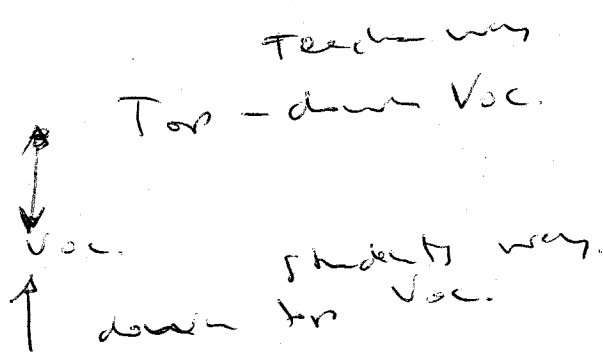 Teacher way
Top - down Voc.
Voc.
students way.
down top Voc.